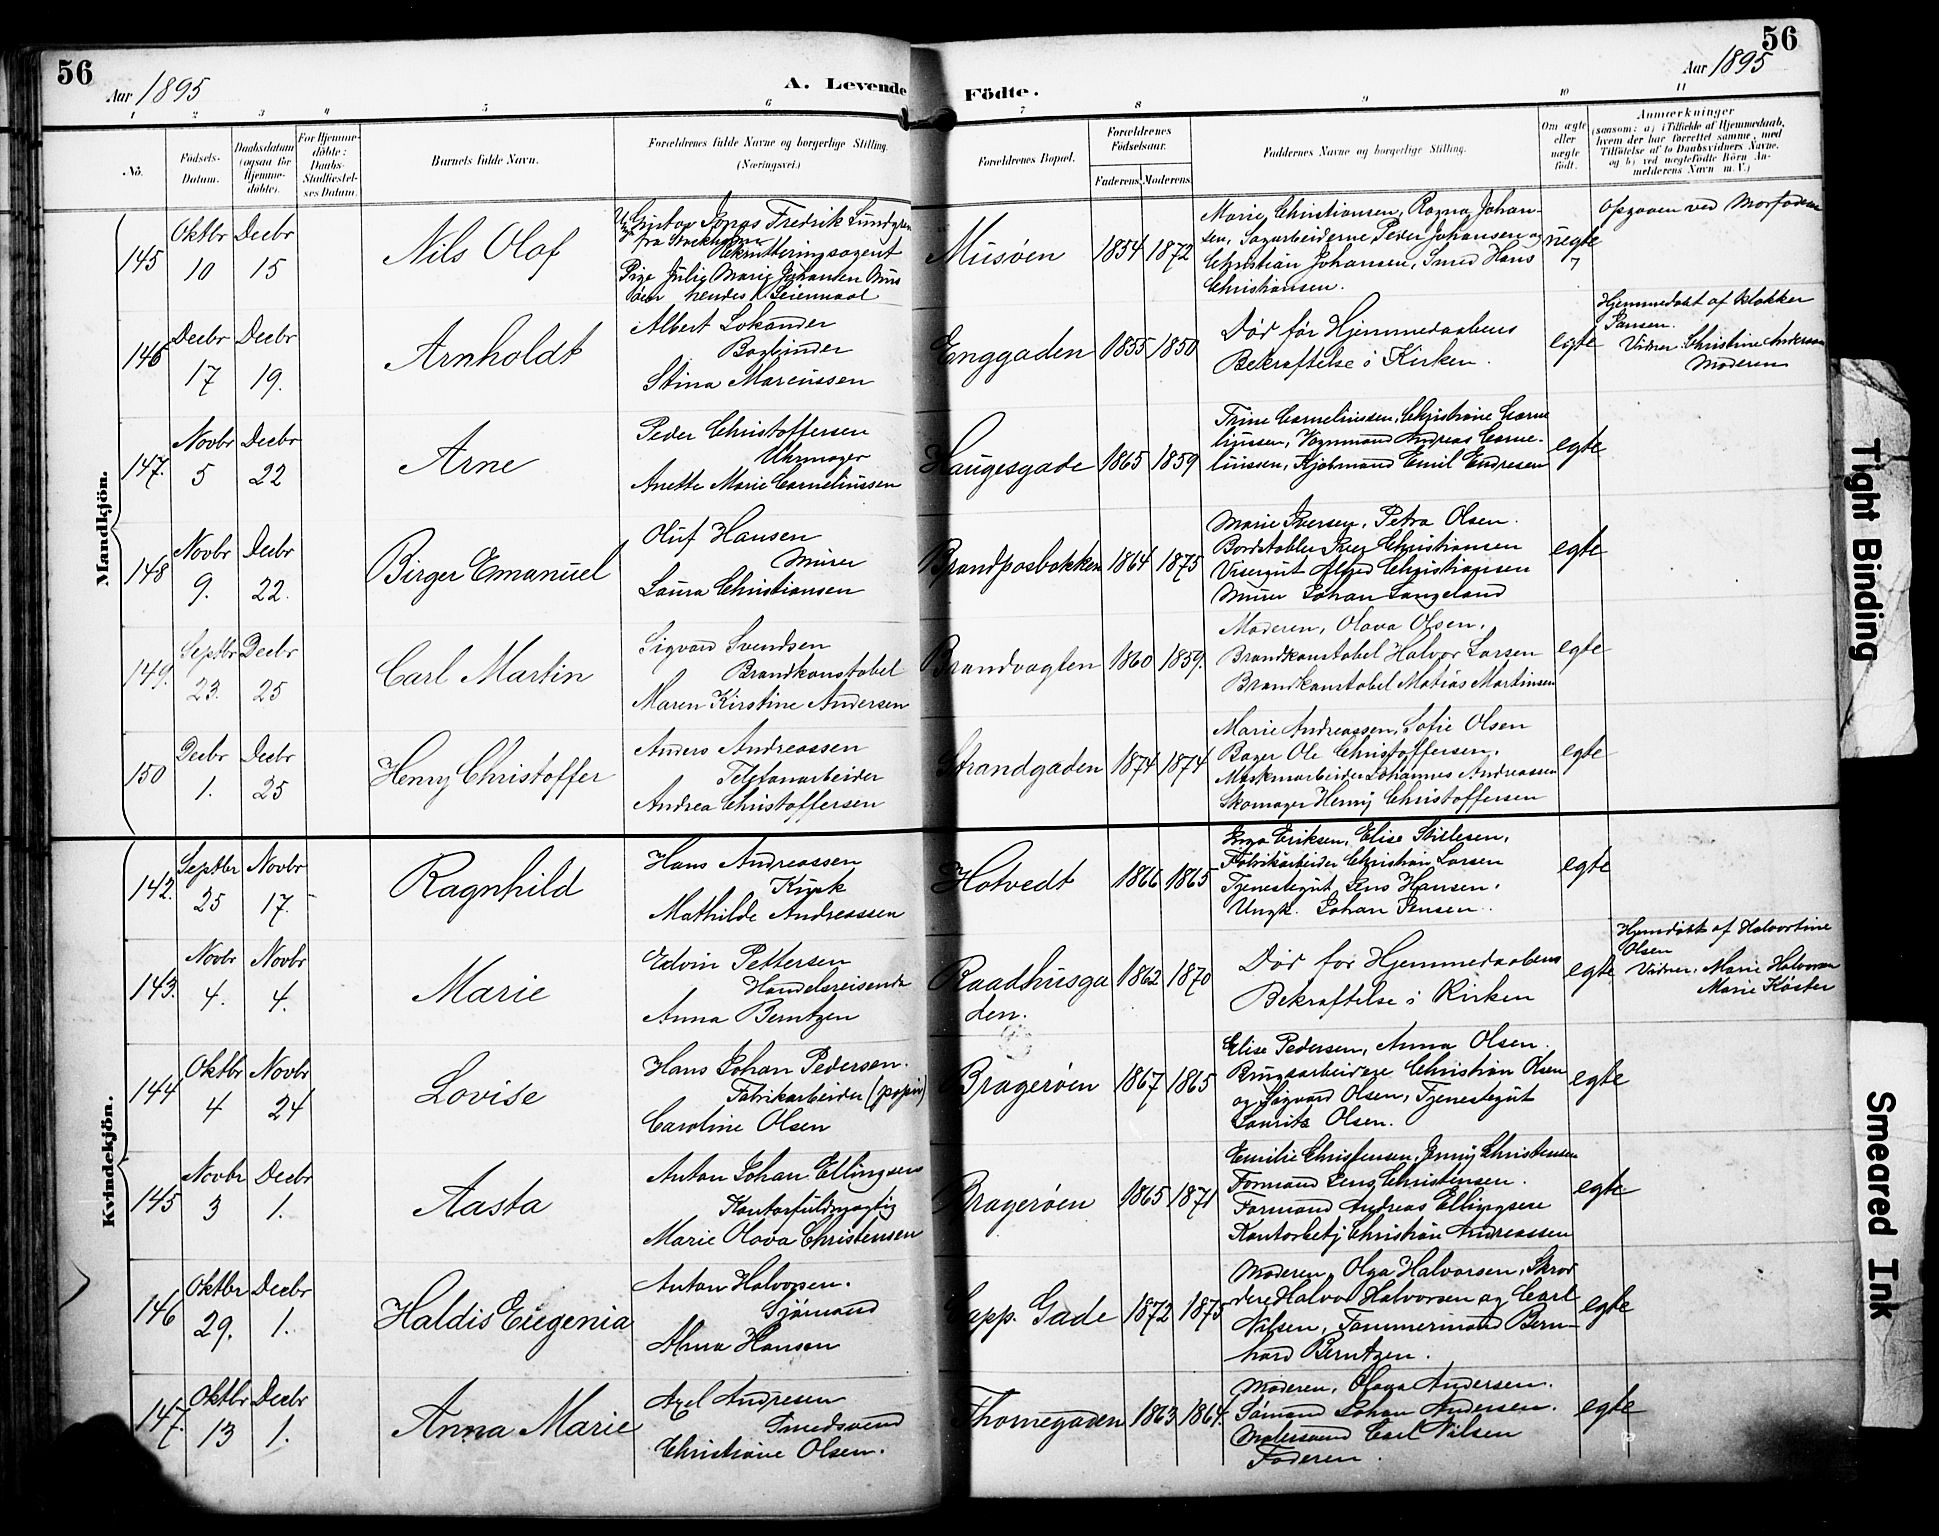 56
Aar 1895
A. Levende Födte.
Aar 1895
56
1 2 3 4 5 6 7 8 9 10 11
No.
Födsels-Datum.
Daabsdatum (ogsaa for Hjemmedöbte).
For Hjemmedöbte: Daabs-Stadfæstelses Datum.
Barnets fulde Navn.
Forældrenes fulde Navne og borgerlige Stilling. (Næringsvei.)
Forældrenes Bopæl.
Forældrenes Födselsaar.
Faderens. Moderens.
Faddernes Navne og borgerlige Stilling.
Om ægte eller uægte födt.
Anmærkninger
(saasom: a) i Tilfælde af Hjemmedaab, hvem der har forrettet samme, med Tilföielse af to Daabsvidners Navne, og b) ved uægtefödte Börn Anmelderens Navn m. V.)
Mandkjön.
145 Oktbr 10 Decbr 15
Nils Olof
Gustav Jonas Fredrik Lundgren
fra Stockholm
Rekrutteringsagent
Pige Julie Marie Johansen Mus
öen hendes 1 Leiermaal
Musöen 1854 1872
Marie Christiansen, Ragna Johan-
sen, Sagarbeiderne Peder Johansen og
Christian Johansen, Smed Hans
Christiansen.
uegte
Opgaven ved Morfaderen
146 Decbr 17 Decbr 19.
Arnholdt
Albert Lokander
Bogbinder
Stina Marcussen
Enggaden 1855 1850
Död för Hjemmedaabens
Bekræftelse i Kirken.
egte
Hjemmedöbt af Klokker
Jansen.
Vidner: Christine Andersen
Moderen
147. Novbr 5 Decbr 22
Arne
Peder Christoffersen
Uhrmager
Anette Marie Corneliussen
Haugesgade 1865 1859
Trine Corneliussen, Christiane Corne
liussen, Vognmand Andreas Corne-
liussen, Kjöbmand Emil Endresen
egte
148 Novbr 9. Decbr 22.
Birger Emanuel
Oluf Hansen
Murer
Laura Christiansen
Brandposbakken 1864 1875
Marie Iversen, Petra Olsen.
Bordstabler Iver Christiansen
Visergut Alfred Christiansen
Murer Johan Langeland
egte
149. Septbr 23. Decbr 25
Carl Martin
Sigvard Svendsen
Brandkonstabel
Maren Kirstine Andersen
Brandvagten 1860 1859.
Moderen, Olava Olsen.
Brandkonstabel Halvor Larsen
Brandkonstabel Matias Martinsen
egte
150 Decbr 1. Decbr 25
Henry Christoffer
Anders Andreassen
Telefonarbeider
Andrea Christoffersen
Strandgaden 1874 1874
Marie Andreassen, Sofie Olsen
Bager Ole Christoffersen.
Maskinarbeider Johannes Andreassen
Skomager Henry Christoffersen
egte
Kvindekjön.
142. Septbr 25 Novbr 17.
Ragnhild
Hans Andreassen
Kusk
Mathilde Andreassen
Hotvedt 1866 1865
Inga Eriksen, Elise Stillesen,
Fabrikarbeider Christian Larsen
Tjenestegut Jens Hansen.
Ungk. Johan Jensen.
egte
143. Novbr 4. Novbr 4.
Marie
Edvin Pettersen
Handelsreisende
Anna Berntzen
Raadhusga
den. 1862 1870
Död for Hjemmedaabens
Bekræftelse i Kirken
egte
Hjemdöbt af Halvortine
Olsen
Vidner: Marie Halvorsen
Marie Koster
144 Oktbr 4 Novbr 24
Lovise
Hans Johan Pedersen.
Fabrikarbeider (papir)
Caroline Olsen
Bragerøen 1867 1865
Elise Pedersen, Anna Olsen.
Brugsarbeidere Christian Olsen
og Sigvard Olsen, Tjenestegut
Laurits Olsen.
egte
145 Novbr 3 Decbr 1.
Aasta
Anton Johan Ellingsen
Kontorfuldmægtig
Marie Olava Christensen
Bragerøen 1865 1871
Emilie Christensen, Jenny Christensen
Formand Jens Christensen.
Formand Andreas Ellingsen
Kontorbetj Christian Andreassen
egte
146 Oktbr 29. Decbr 1.
Haldis Eugenia
Anton Halvorsen.
Sjömand
Alma Hansen
Capp. Gade 1872 1875
Moderen, Olga Halvorsen, Skræd
dere Halvor Halvorsen og Carl
Nilsen, Tømmermand Bern-
hard Berntzen.
egte
147. Oktbr 13 Decbr 1.
Anna Marie
Axel Andresen
Smedsvend
Christiane Olsen.
Thornegaden 1863 1864.
Moderen, Olava Andersen.
Sömand Johan Andersen.
Malersvend Carl Nilsen
Faderen.
egte
Tight Binding
Smeared Ink